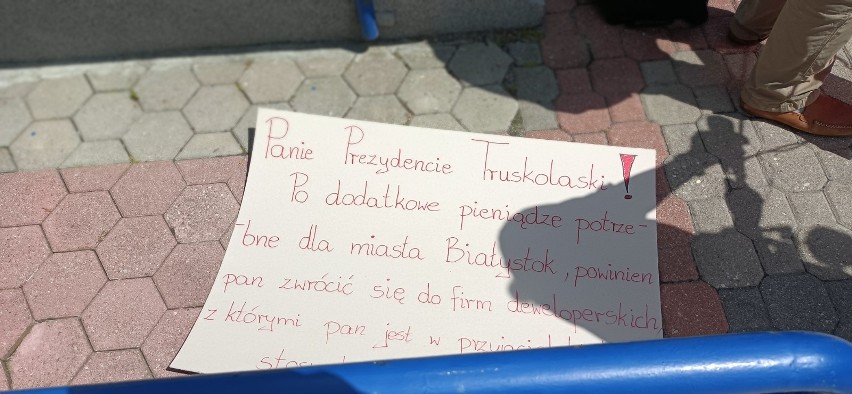 Panie Prezydencie Truskolaski!
Po dodatkowe pieniądze potrze-
-bne dla miasta Białystok, powinien
pan zwrócić się do firm deweloperskich
z którymi pan jest w